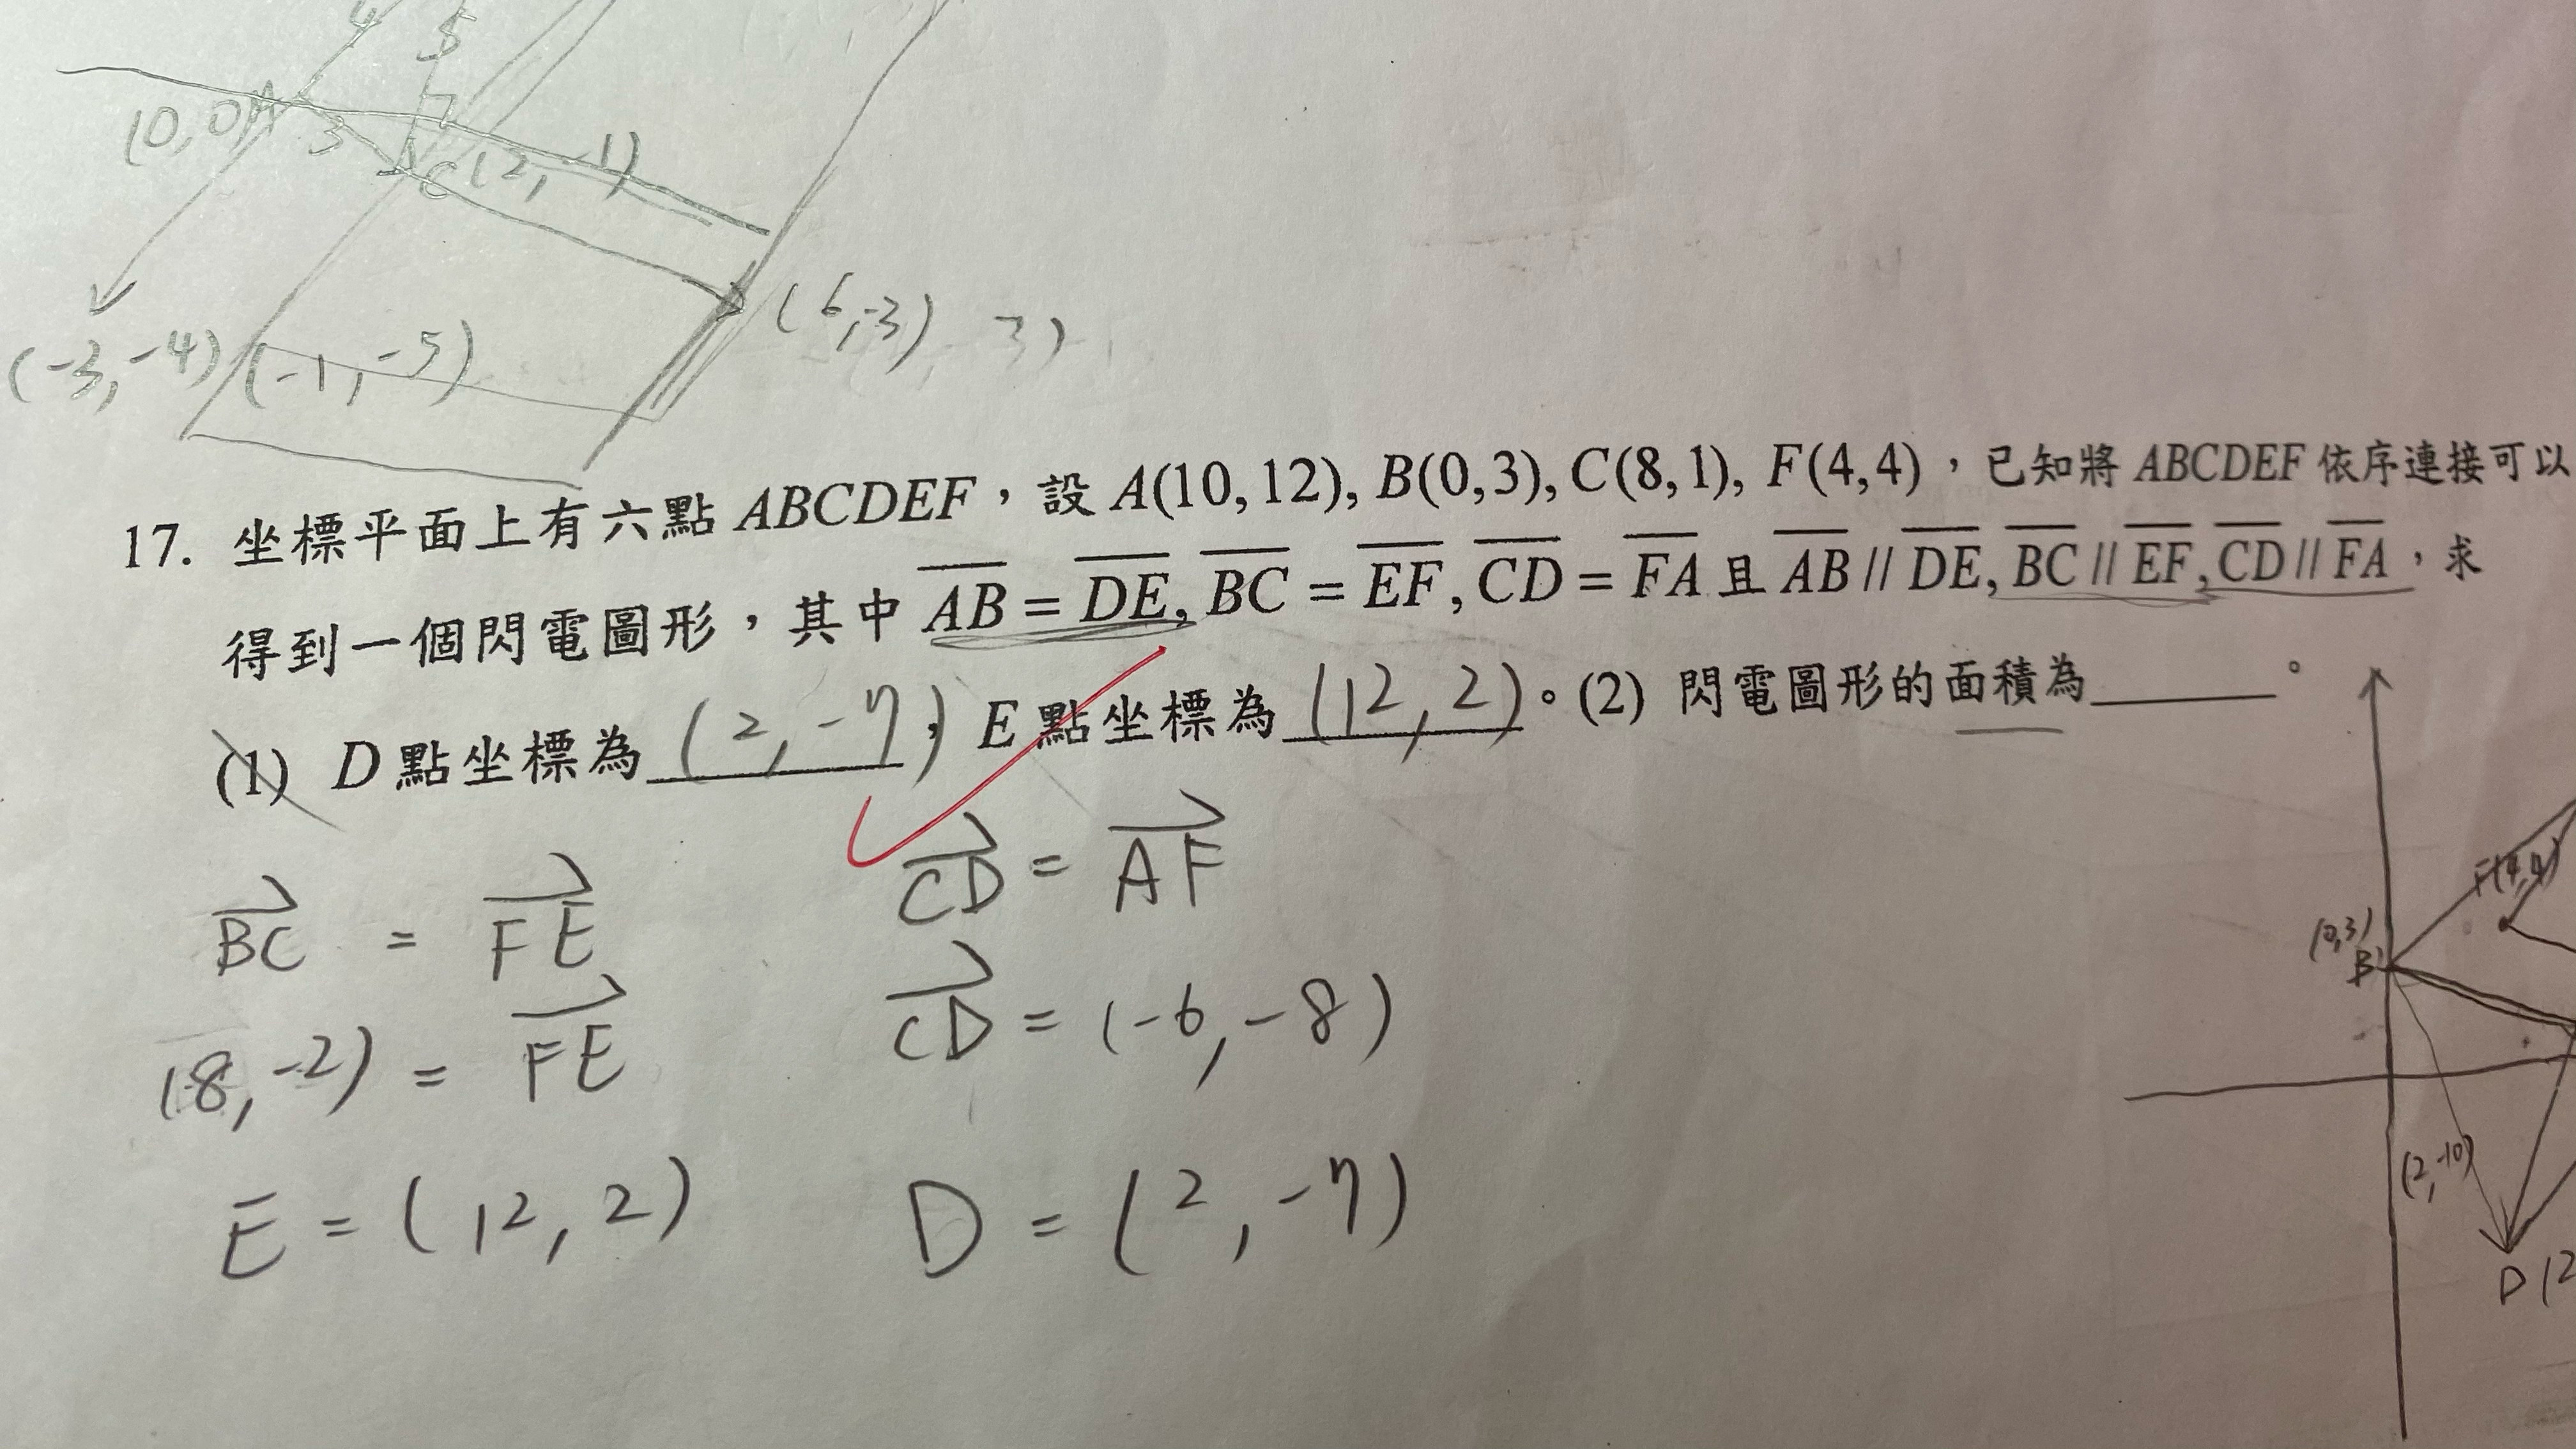 4 5
(0,0) A 3
C (2,-1)
(6,-3) 3)
(-3,-4) (-1,-5)
17. 坐標平面上有六點 ABCDEF，設 A(10,12), B(0,3), C(8,1), F(4,4)，已知將 ABCDEF 依序連接可以
得到一個閃電圖形，其中 AB = DE, BC = EF, CD = FA 且 AB // DE, BC // EF, CD // FA，求
(1) D 點坐標為 (2,-7)，E 點坐標為 (12,2)。(2) 閃電圖形的面積為______。
BC = FE
CD = AF
(8,-2) = FE
CD = (-6,-8)
E = (12,2)
D = (2,-7)
F(4,4)
(0,3)
B
(2,-10)
D (2